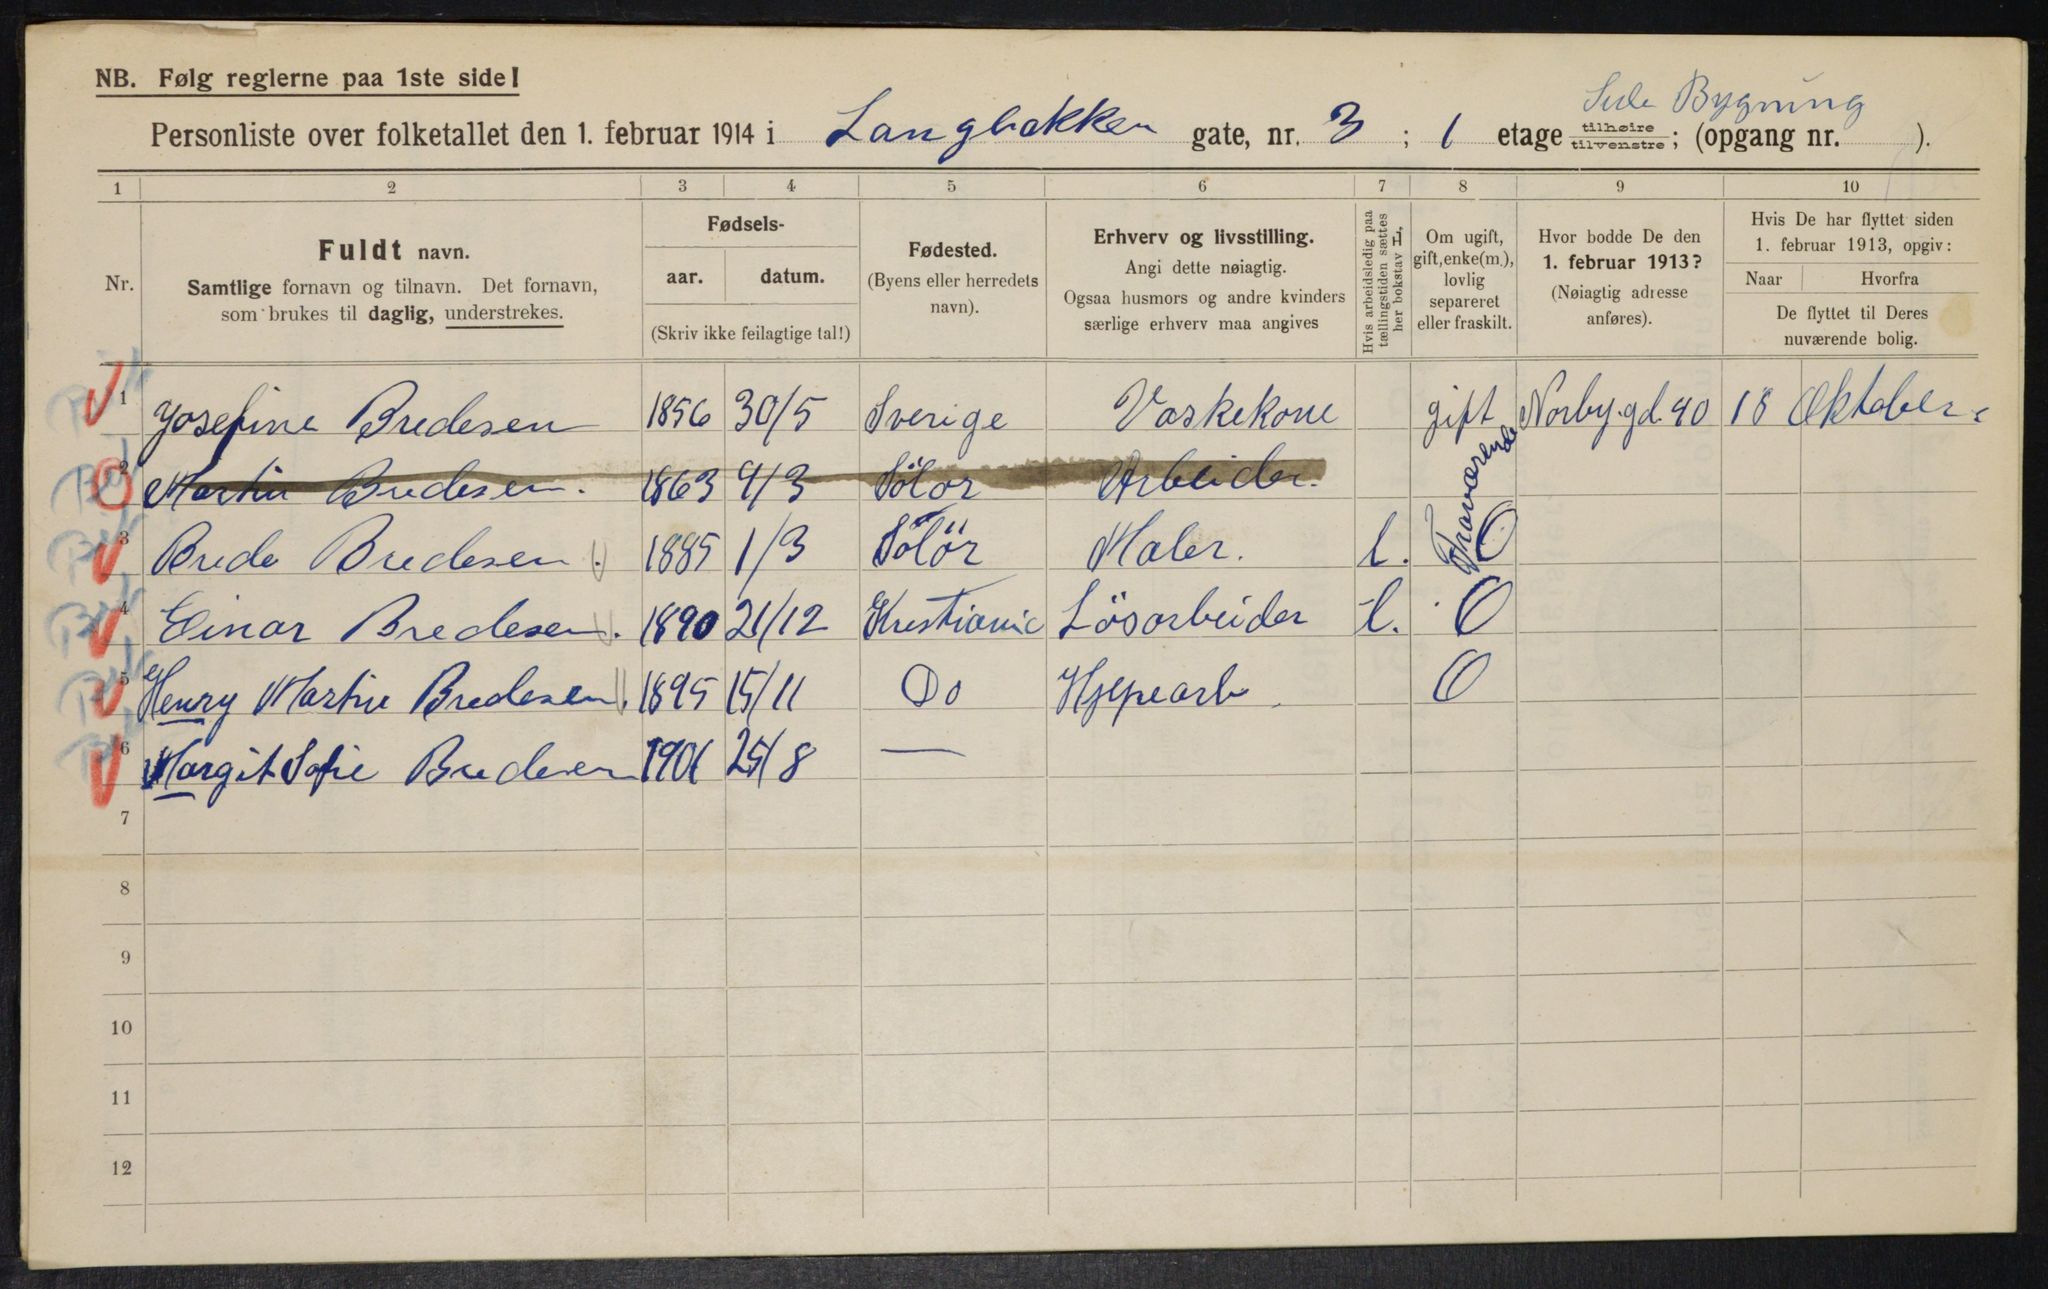 NB. Følg reglerne paa 1ste side!
Side Bygning
Personliste over folketallet den 1. februar 1914 i Langbakken gate, nr. 3 ; 1 etage tilhøire tilvenstre ; (opgang nr. ).
1 2 3 4 5 6 7 8 9 10
Nr.
Fuldt navn.
Samtlige fornavn og tilnavn. Det fornavn,
som brukes til daglig, understrekes.
Fødsels-
aar. datum.
(Skriv ikke feilagtige tal!)
Fødested.
(Byens eller herredets
navn).
Erhverv og livsstilling.
Angi dette nøiagtig.
Ogsaa husmors og andre kvinders
særlige erhverv maa angives
Hvis arbeidsledig paa
tællingstiden sættes
her bokstav L.
Om ugift,
gift, enke(m.),
lovlig
separeret
eller fraskilt.
Hvor bodde De den
1. februar 1913?
(Nøiagtig adresse
anføres).
Hvis De har flyttet siden
1. februar 1913, opgiv:
Naar Hvorfra
De flyttet til Deres
nuværende bolig.
1 Josefine Bredesen 1856 30/5 Sverige Vaskekone gift Norby.gd. 40 18 Oktober
2 Martin Bredesen. 1863 9/3 Solør Arbeider. Fraværende
3 Brede Bredesen. 1885 1/3 Solör Maler. l. O
4 Einar Bredesen. 1890 21/12 Kristiania Lösarbeider l. O
5 Henry Martin Bredesen. 1895 15/11 Do Hjepearb O
6 Margit Sofie Bredesen 1901 25/8 —
7
8
9
10
11
12